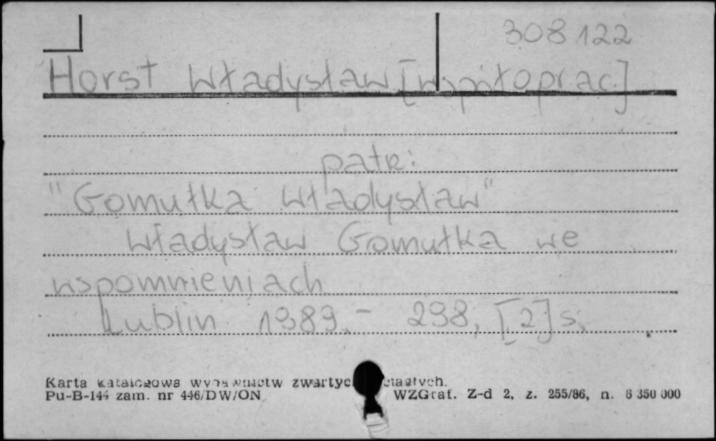 308 122
Horst Władysław [współoprac.]
patrz:
"Gomułka Władysław"
Władysław Gomułka we
wspomnieniach
Lublin 1989. - 298, [2] s.
Karta katalogowa wydawnictw zwartych
Pu-B-144 zam. nr 446/DW/ON WZGraf. Z-d 2, z. 255/86, n. 6 350 000